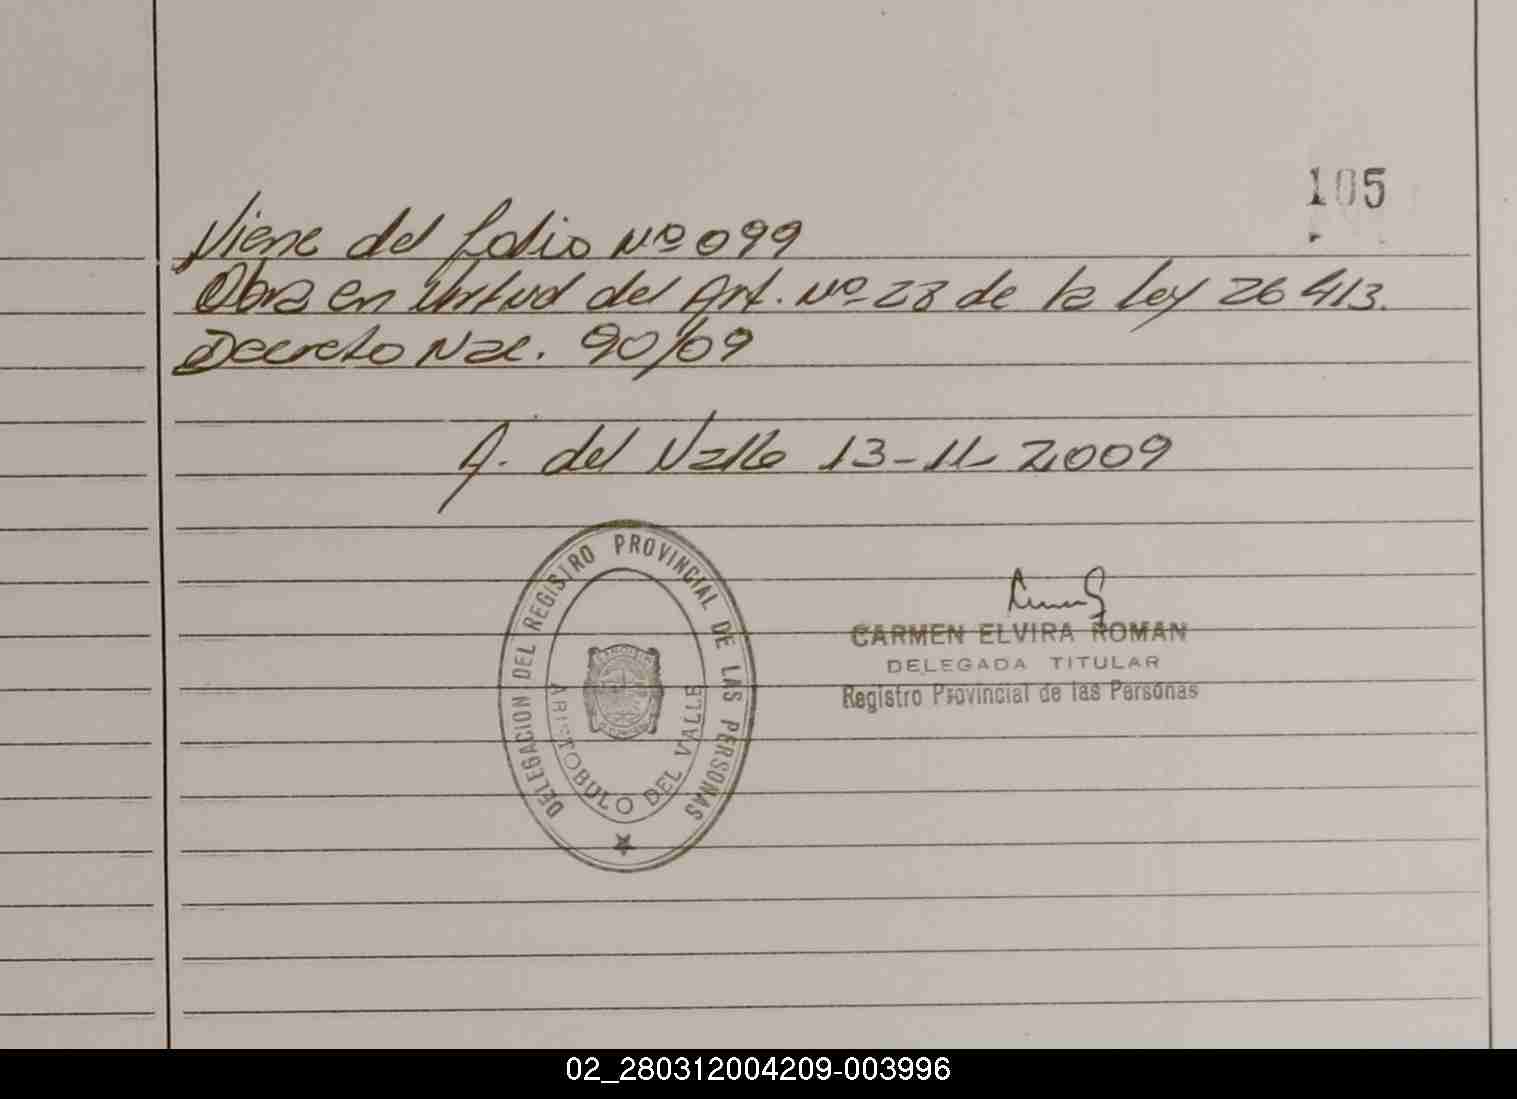 105
Viene del folio Nº 099
Obra en virtud del Art. Nº 28 de la Ley 26413.
Decreto Nac. 90/09
A. del Valle 13-11-2009
DELEGACION DEL REGISTRO PROVINCIAL DE LAS PERSONAS
ARISTOBULO DEL VALLE
CARMEN ELVIRA ROMAN
DELEGADA TITULAR
Registro Provincial de las Personas
02_280312004209-003996